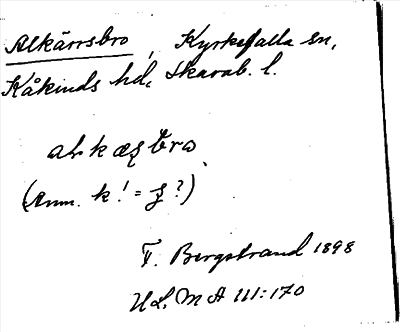 Alkärrsbro, Kyrkefalla sn,
Kåkinds hd, Skarab. l.
(Anm. k! = ʒ?)
F. Bergstrand 1898
ULMA 111:170